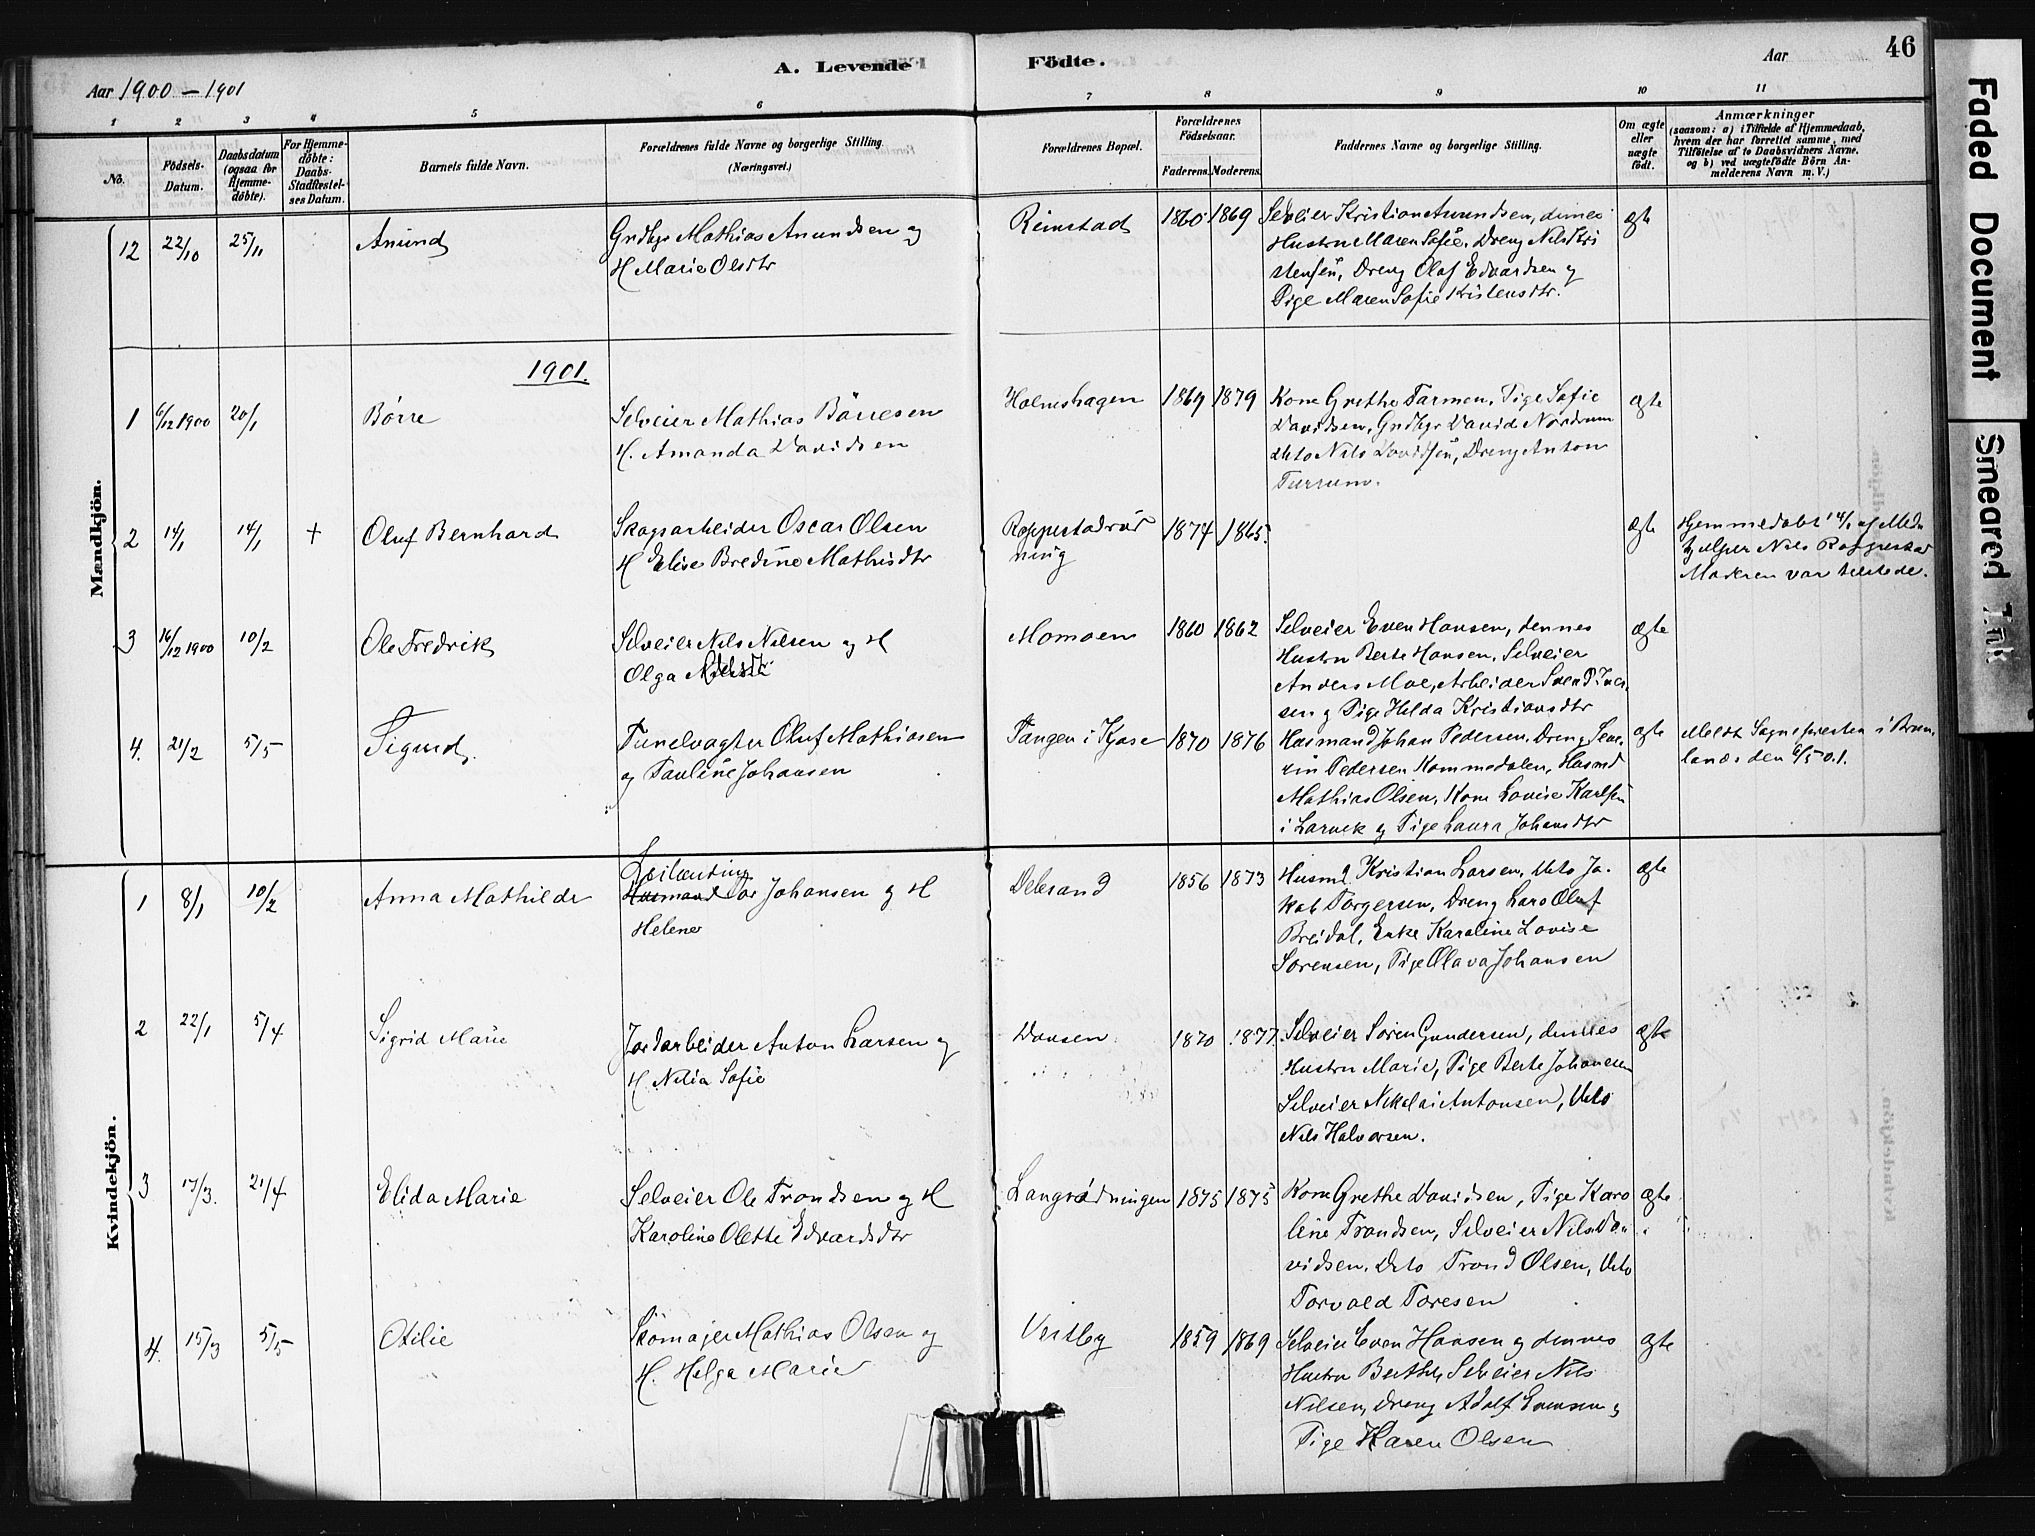 46
A. Levende Födte.
Aar 1900 – 1901
Aar
1 2 3 4 5 6 7 8 9 10 11
No.
Födsels-Datum.
Daabsdatum (ogsaa for Hjemmedöbte).
For Hjemmedöbte: Daabs-Stadfæstelses Datum.
Barnets fulde Navn.
Forældrenes fulde Navne og borgerlige Stilling. (Næringsvei.)
Forældrenes Bopæl.
Forældrenes Födselsaar.
Faderens. Moderens.
Faddernes Navne og borgerlige Stilling.
Om ægte eller uægte födt.
Anmærkninger
(saasom: a) i Tilfælde af Hjemmedaab, hvem der har forrettet samme, med Tilföielse af to Daabsvidners Navne, og b) ved uægtefödte Börn Anmelderens Navn m. V.)
Mandkjön.
12 22/10 25/11 Anund
Grdbgr Mathias Anundsen og
H Marie Olsdtr
Reimstad 1860 1869
Selveier Kristian Amundsen, dennes
Hustru Maren Sofie, Dreng Nils Kri
stensen, Dreng Olaf Edvardsen og
Pige Maren Sofie Kristensdtr.
ægte
1901.
1 6/12 1900 20/1 Børre
Selveier Mathias Börresen
H. Amanda Davidsen
Holmshagen 1869 1879
Kone Grethe Farmen, Pige Sofie
Davidsen, Grdbgr David Nordrum
dito Nils Davidsen, Dreng Anton
Furrum.
ægte
2 14/1 14/1 + Oluf Bernhard
Skogsarbeider Oscar Olsen
H Elise Bredine Mathisdtr
Roppestadrød
ning 1874 1865.
ægte
Hjemmedøbt 14/1 af Med
hjelper Nils Roppestad
Moderen var tilstede.
3 16/12 1900 10/2 Ole Fredrik
Selveier Nils Nilsen og H
Olga Nilsdtr
Momoen 1860 1862
Selveier Even Hansen, dennes
Hustru Berte Hansen, Selveier
Anders Moe, Arbeider Sven P. Iver
sen og Pige Helda Kristiansdtr
ægte
4. 21/2 5/5 Sigurd
Tunelvagter Oluf Mathiasen
og Pauline Johansen
Tangen i Kjose 1870 1876
Husmand Johan Pedersen, Dreng Seve
rin Pedersen Kommedalen, Husmd
Mathias Olsen, Kone Lovise Karlsen
i Larvik og Pige Laura Johansdtr
ægte
Meldt Sognepresten i Brun
lanæs den 6/5 01.
Kvindekjön.
1 8/1 10/2 Anna Mathilde
Leilænding
Husmand Tor Johansen og H
Helene
Delerand 1856 1873
Husmd. Kristian Larsen, dito Ja-
kob Torgersen, Dreng Lars Oluf
Breidal, Enke Karoline Lovise
Sørensen, Pige Olava Johansen
ægte
2 22/1 5/4 Sigrid Marie
Jordarbeider Anton Larsen og
H. Nilia Sofie
Dousen 1870 1877
Selveier Søren Gundersen, dennes
Hustru Marie, Pige Berte Johansen
Selveier Nikolai Antonsen, dito
Nils Halvorsen.
ægte
3 17/3. 21/4 Elida Marie
Selveier Ole Trondsen og H
Karoline Olette Edvardsdtr
Langrødningen 1875 1875
Kone Grethe Davidsen, Pige Karo
line Trondsen, Selveier Nils Da
vidsen, dito Trond Olsen, dito
Torvald Toresen
ægte
4. 15/3 5/5 Otilie
Skomajer Mathias Olsen og
H. Helga Marie
Vestby 1859 1869
Selveier Even Hansen og dennes
Hustru Berthe, Selveier Nils
Nilsen, Dreng Adolf Evensen og
Pige Karen Olsen
ægte
Faded Document
Smeared Ink